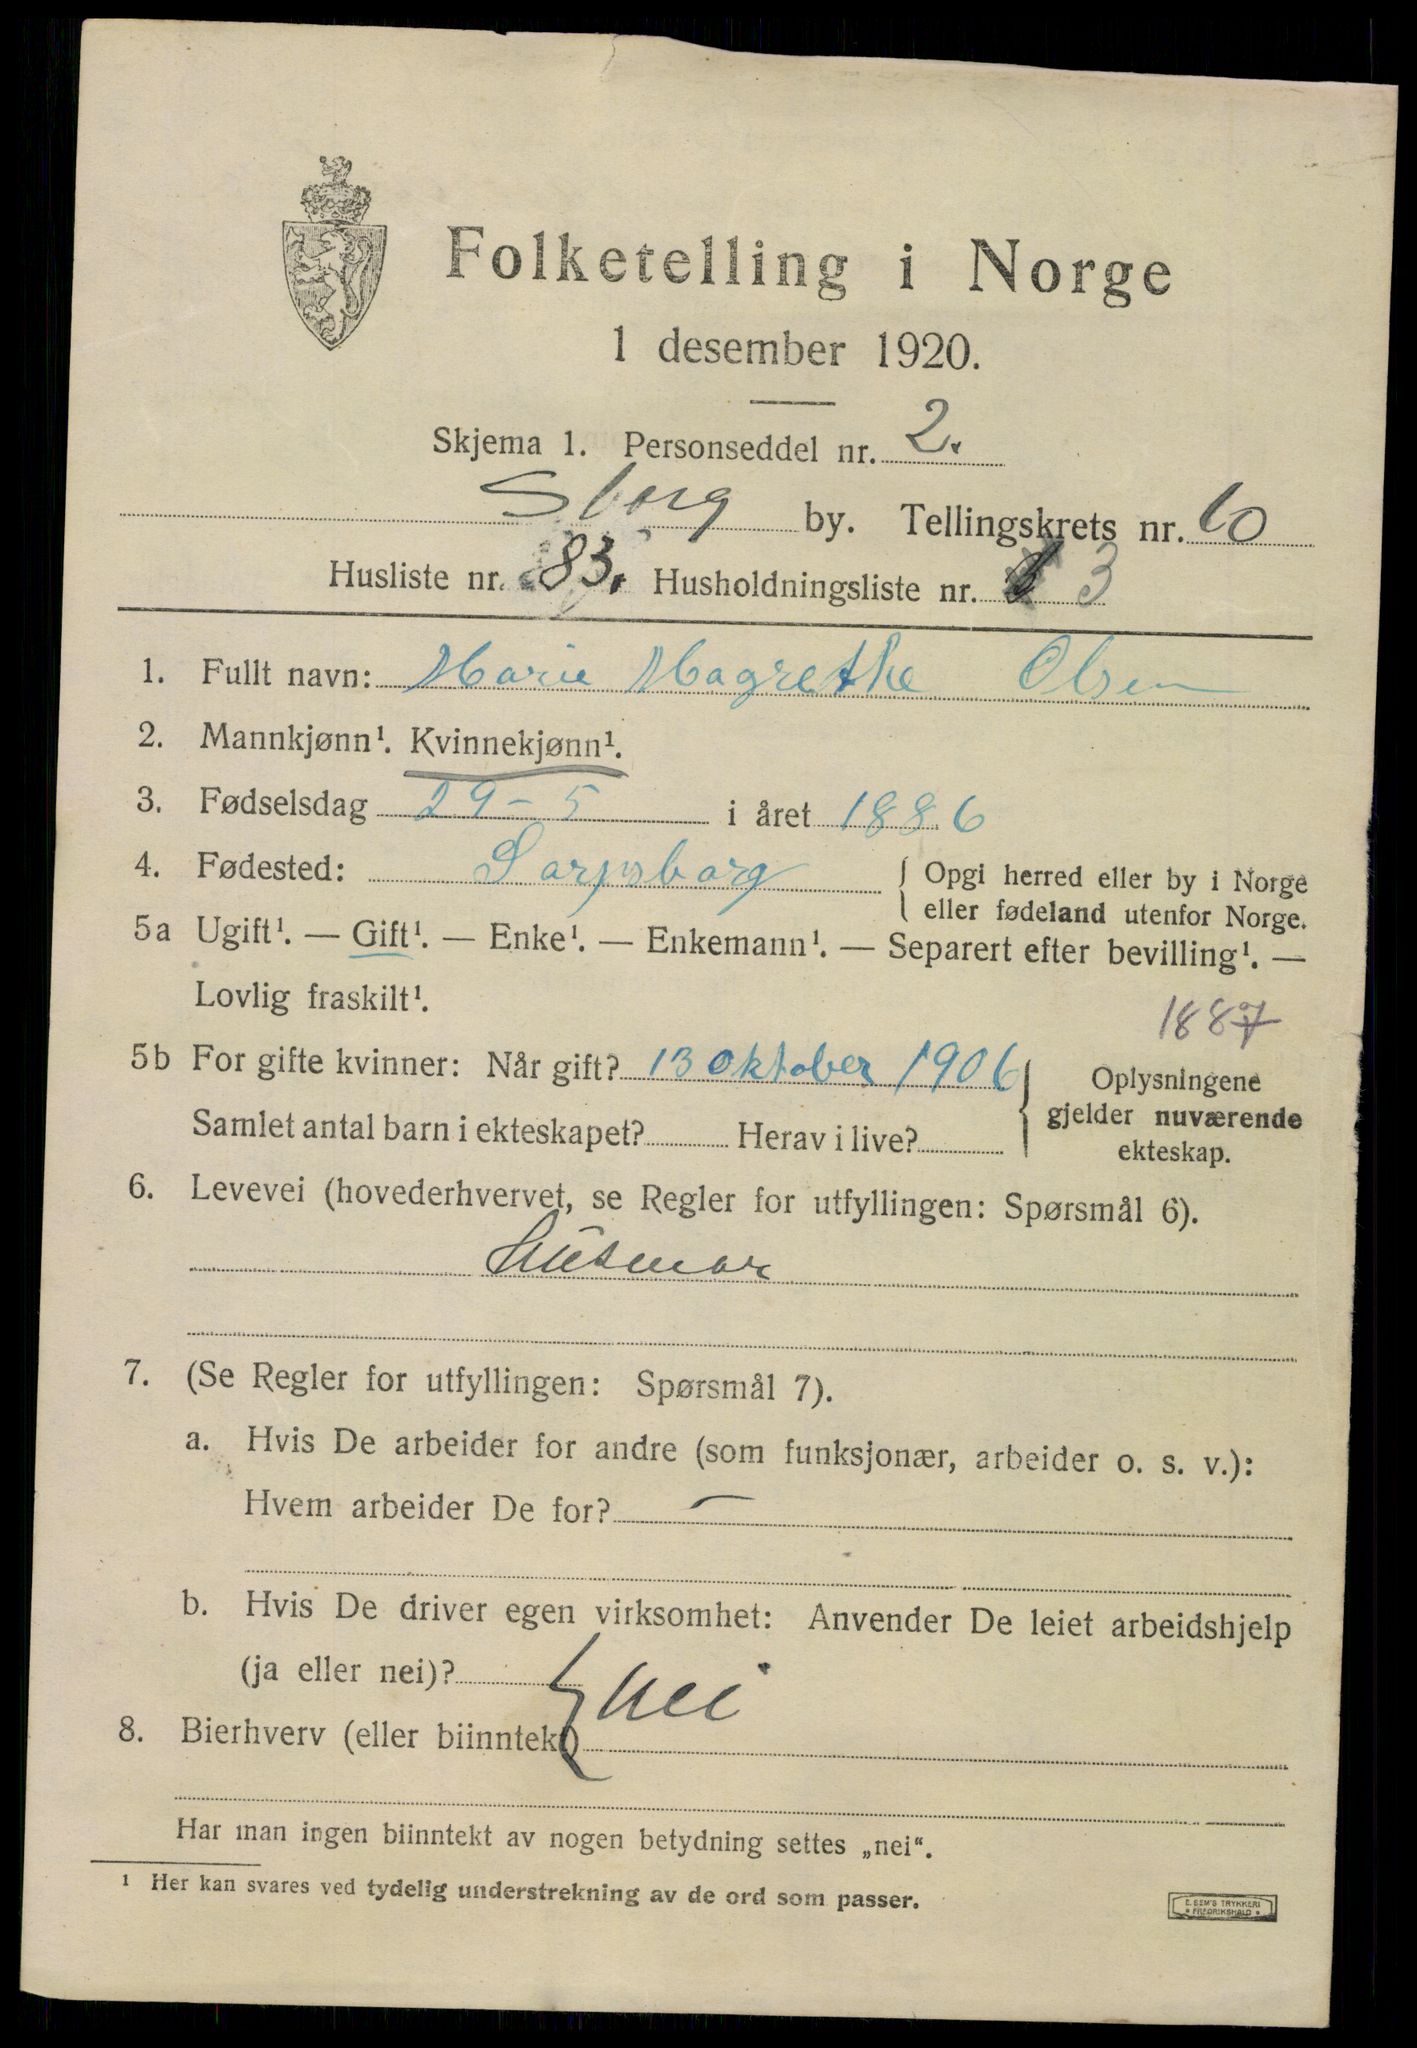 Folketelling i Norge
1 desember 1920.
Skjema 1. Personseddel nr. 2.
Sborg by. Tellingskrets nr. 10
Husliste nr. 83. Husholdningsliste nr. 3
1. Fullt navn: Marie Magrethe Olsen
2. Mannkjønn¹. Kvinnekjønn¹.
3. Fødselsdag 29-5 i året 1886
4. Fødested: Sarpsborg { Opgi herred eller by i Norge
eller fødeland utenfor Norge.
5a Ugift¹. — Gift¹. — Enke¹. — Enkemann¹. — Separert efter bevilling¹. —
Lovlig fraskilt¹.
1887
5b For gifte kvinner: Når gift? 13 oktober 1906 { Oplysningene
Samlet antal barn i ekteskapet? Herav i live? gjelder nuværende
ekteskap.
6. Levevei (hovederhvervet, se Regler for utfyllingen: Spørsmål 6).
Husmor
7. (Se Regler for utfyllingen: Spørsmål 7).
a. Hvis De arbeider for andre (som funksjonær, arbeider o. s. v.):
Hvem arbeider De for? —
b. Hvis De driver egen virksomhet: Anvender De leiet arbeidshjelp
(ja eller nei)?
nei
8. Bierhverv (eller biinntekt)
Har man ingen biinntekt av nogen betydning settes „nei“.
¹ Her kan svares ved tydelig understrekning av de ord som passer.
E. SEM'S TRYKKERI
• FREDRIKSHALD •